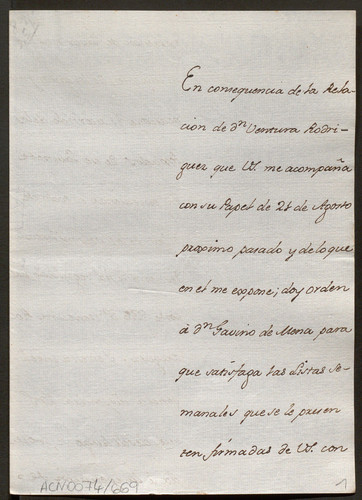 En consequencia de la Rela-
cion de dⁿ Ventura Rodri-
guez que V. me acompaña
con su Papel de 21 de Agosto
proximo pasado y de lo que
en el me expone; doy orden
à dⁿ Gavino de Mena para
que satisfaga las Listas se-
manales que se le presen
ten firmadas de V. con
ACN0074/669
1